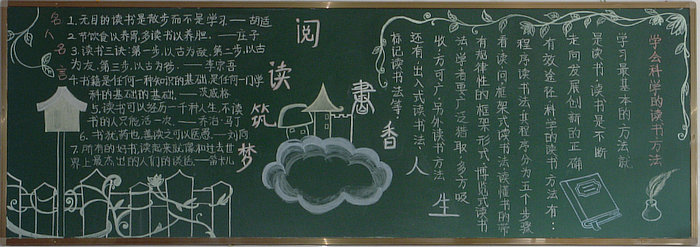 名人名言
1.无目的读书是散步而不是学习.——胡适
2.节饮食以养胃,多读书以养胆.——庄子
3.读书三诀:第一步,以古为敌,第二步,以古
为友,第三步,以古为
4.书籍是任何一种知识的基础,是任何一门学
科的基础的基础.——茨威格
5.读书可以经历一千种人生,不读
书的人只能活一次.——乔治·马丁
6.书犹药也,善读之可以医愚.——刘向
7.所有的好书,读起来就像和过去世
界上最杰出的人们的谈话.——笛卡儿
阅读筑梦
书香人生
学会科学的读书方法
学习最基本的方法就
是读书,读书是不断
走向发展创新的正确
有效途径.科学的读书方法有:
程序读书法,其程序分为五个步骤
看读问框架式读书法,读懂书的带
有规律性的框架形式,博览式读书
法,学者要广泛猎取,多方吸
收.方可广,另外读书方法
还有:出入式读书法、
标记读书法等.